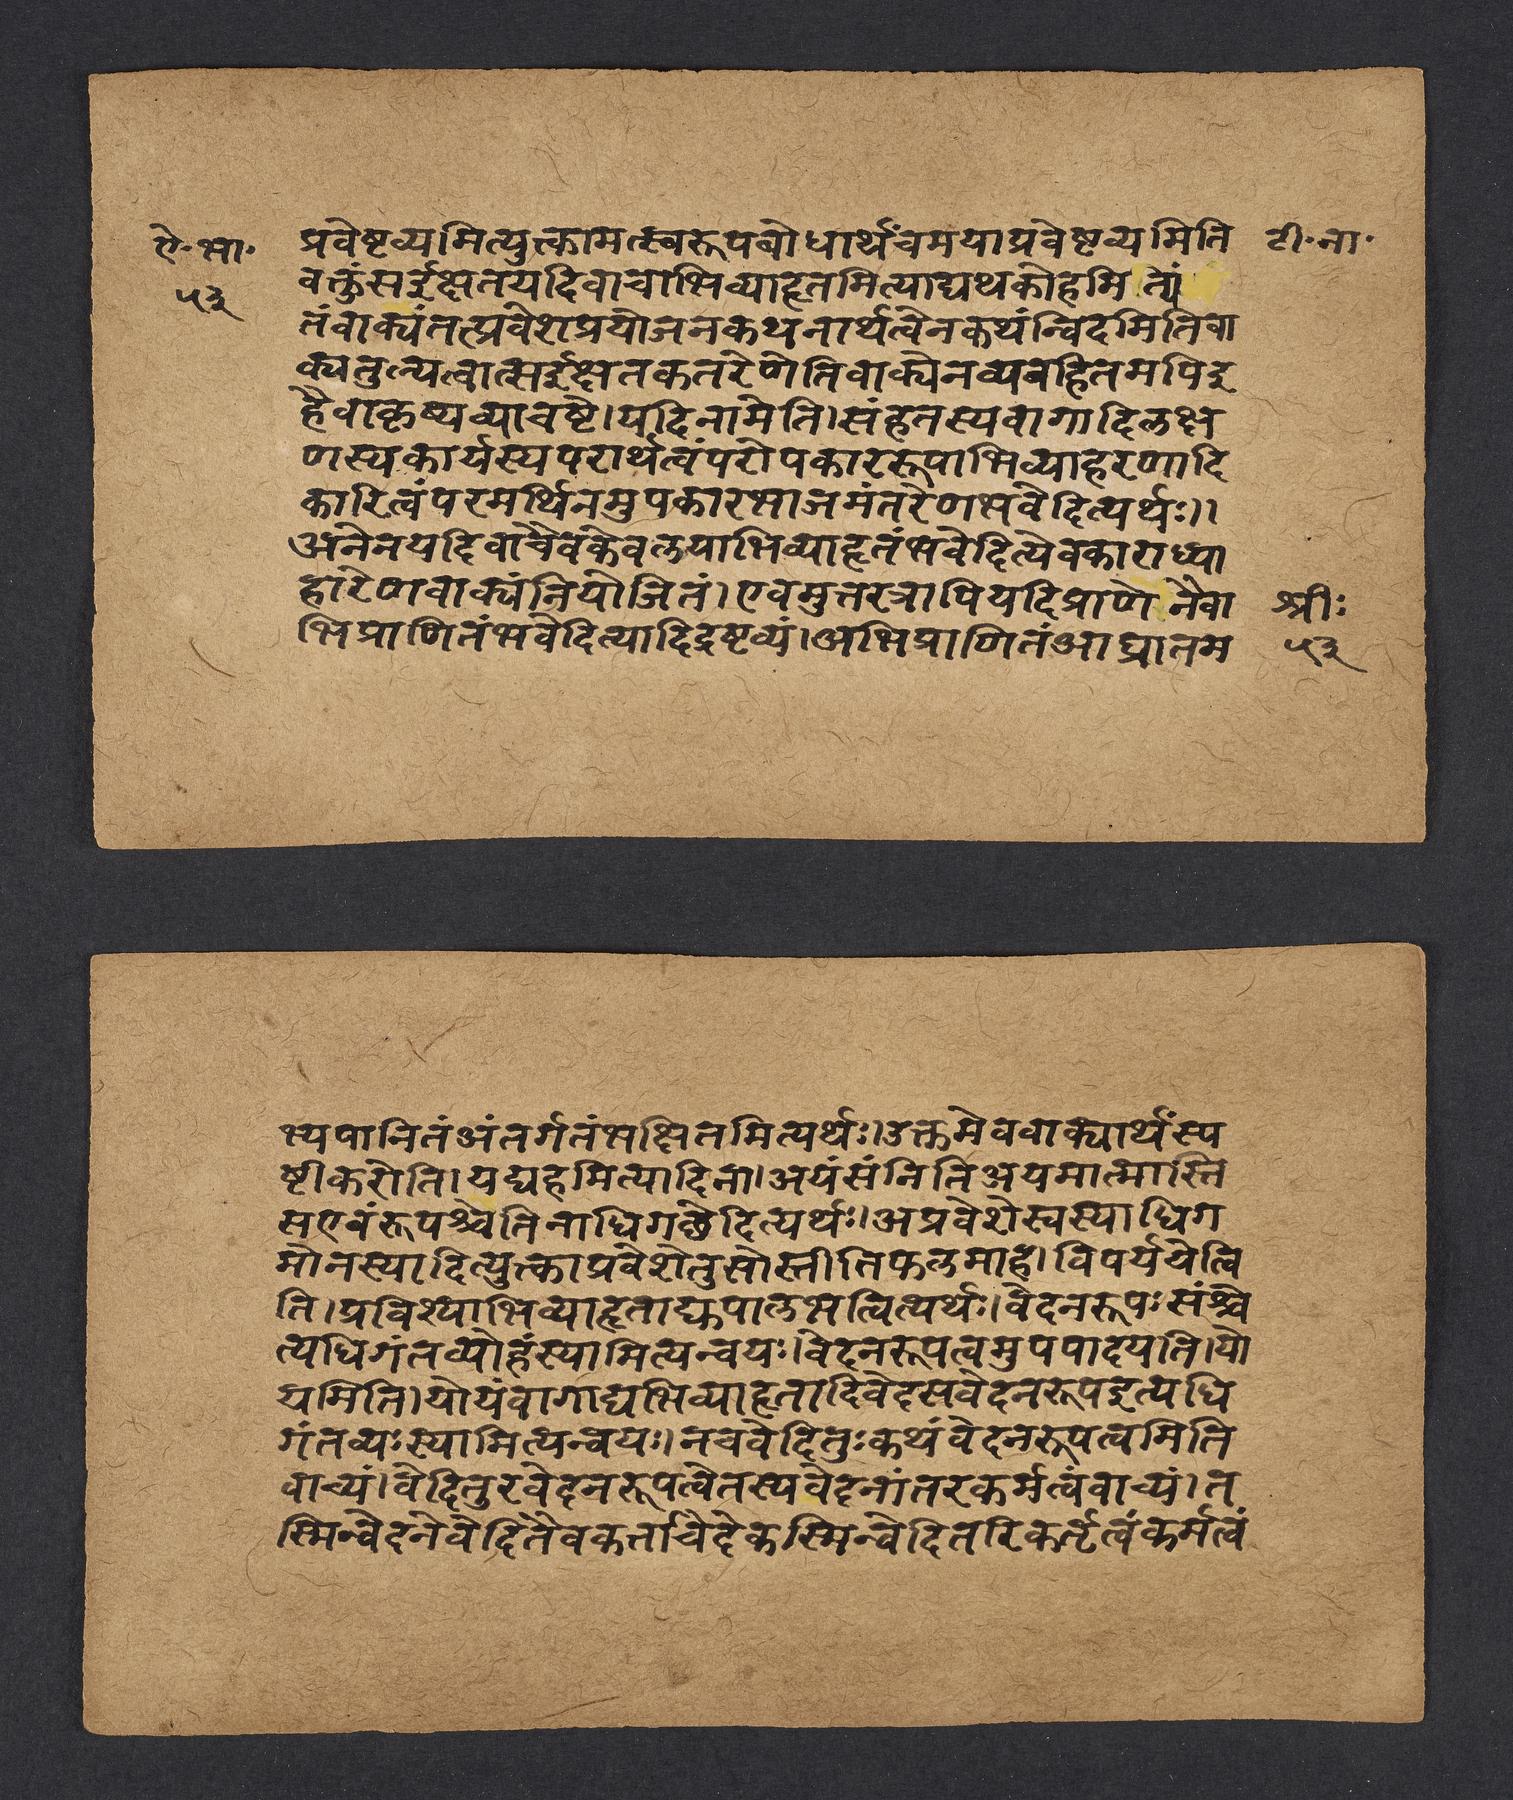 ऐ॰भा॰
५३
प्रवेष्टव्यमित्युक्त्वामत्स्वरूपबोधार्थंचमयाप्रवेष्टव्यमिति
टी॰ना॰
वक्तुंसईक्षतयदिवाचाभिव्याहृतमित्याद्यथकोहमित्यं
तंवाक्यंतत्प्रवेशप्रयोजनकथनार्थत्वेनकथंन्विदमितिवा
क्यतुल्यत्वात्सईक्षतकतरेणेतिवाक्येनव्यवहितमपिइ
हैवाकृष्यव्याचष्टे।यदिनामेति।संहतस्यवागादिलक्ष
णस्यकार्यस्यपरार्थत्वंपरोपकाररूपाभिव्याहरणादि
कारित्वंपरमर्थिनमुपकारभाजमंतरेणभवेदित्यर्थः।।
अनेनयदिवाचैवकेवलयाभिव्याहृतंभवेदित्येवकाराध्या
हारेणवाक्यंनियोजितं।एवमुत्तरत्रापियदिप्राणेनैवा
श्रीः
भिप्राणितंभवेदित्यादिद्रष्टव्यं।अभिप्राणितंआघ्रातम
५३
भ्यपानितंअंतर्गतंभक्षितमित्यर्थः।उक्तमेववाक्यार्थंस्प
ष्टीकरोति।यद्यहमित्यादिना।अयंसंनितिअयमात्मास्ति
सएवंरूपश्चेतिनाधिगछेदित्यर्थः।अप्रवेशेस्वस्याधिग
मोनस्यादित्युक्त्वाप्रवेशेतुसोस्तीतिफलमाह।विपर्ययेत्वि
ति।प्रविश्याभिव्याहृताद्युपालभत्वित्यर्थः।वेदनरूपःसंश्चे
त्यधिगंतव्योहंस्यामित्यन्वयः।वेदनरूपत्वमुपपादयति।यो
यमिति।योयंवागाद्यभिव्याहृतादिवेदसवेदनरूपइत्यधि
गंतव्यःस्यामित्यन्वयः।नचवेदितुःकथंवेदनरूपत्वमिति
वाच्यं।वेदितुरवेदनरूपत्वेतस्यवेदनांतरकर्मत्वंवाच्यं।त
स्मिन्वेदनेवेदितैवकर्त्ताचेदेकस्मिन्वेदितरिकर्तृत्वंकर्मत्वं